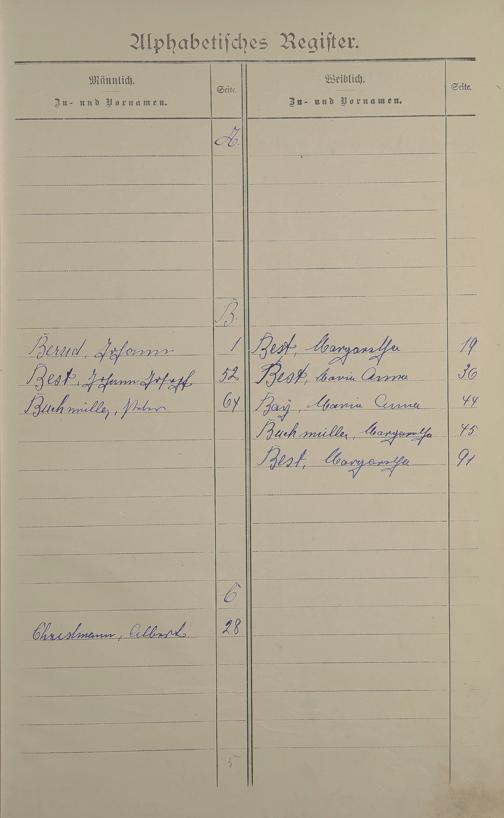 Alphabetisches Register.
Männlich.
Zu- und Vornamen.
Seite.
Weiblich.
Zu- und Vornamen.
Seite.
A.
B.
Bernd, Johann 1
Best, Margaretha 19
Best, Johann Joseph 52
Best, Maria Anna 36
Buchmüller, Peter 64
Bay, Maria Anna 44
Buchmüller, Margaretha 45
Best, Margaretha 91
C
Christmann, Albert 28
5